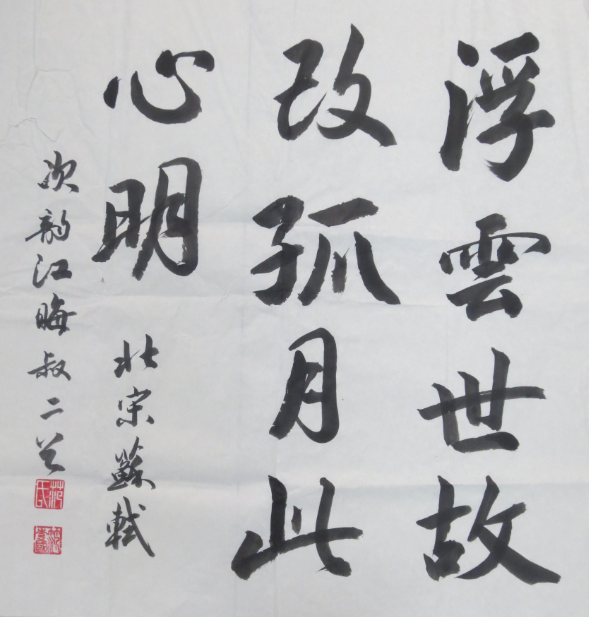 浮雲世故
改孤月此
心明
北宋蘇軾
次韵江晦叔二首